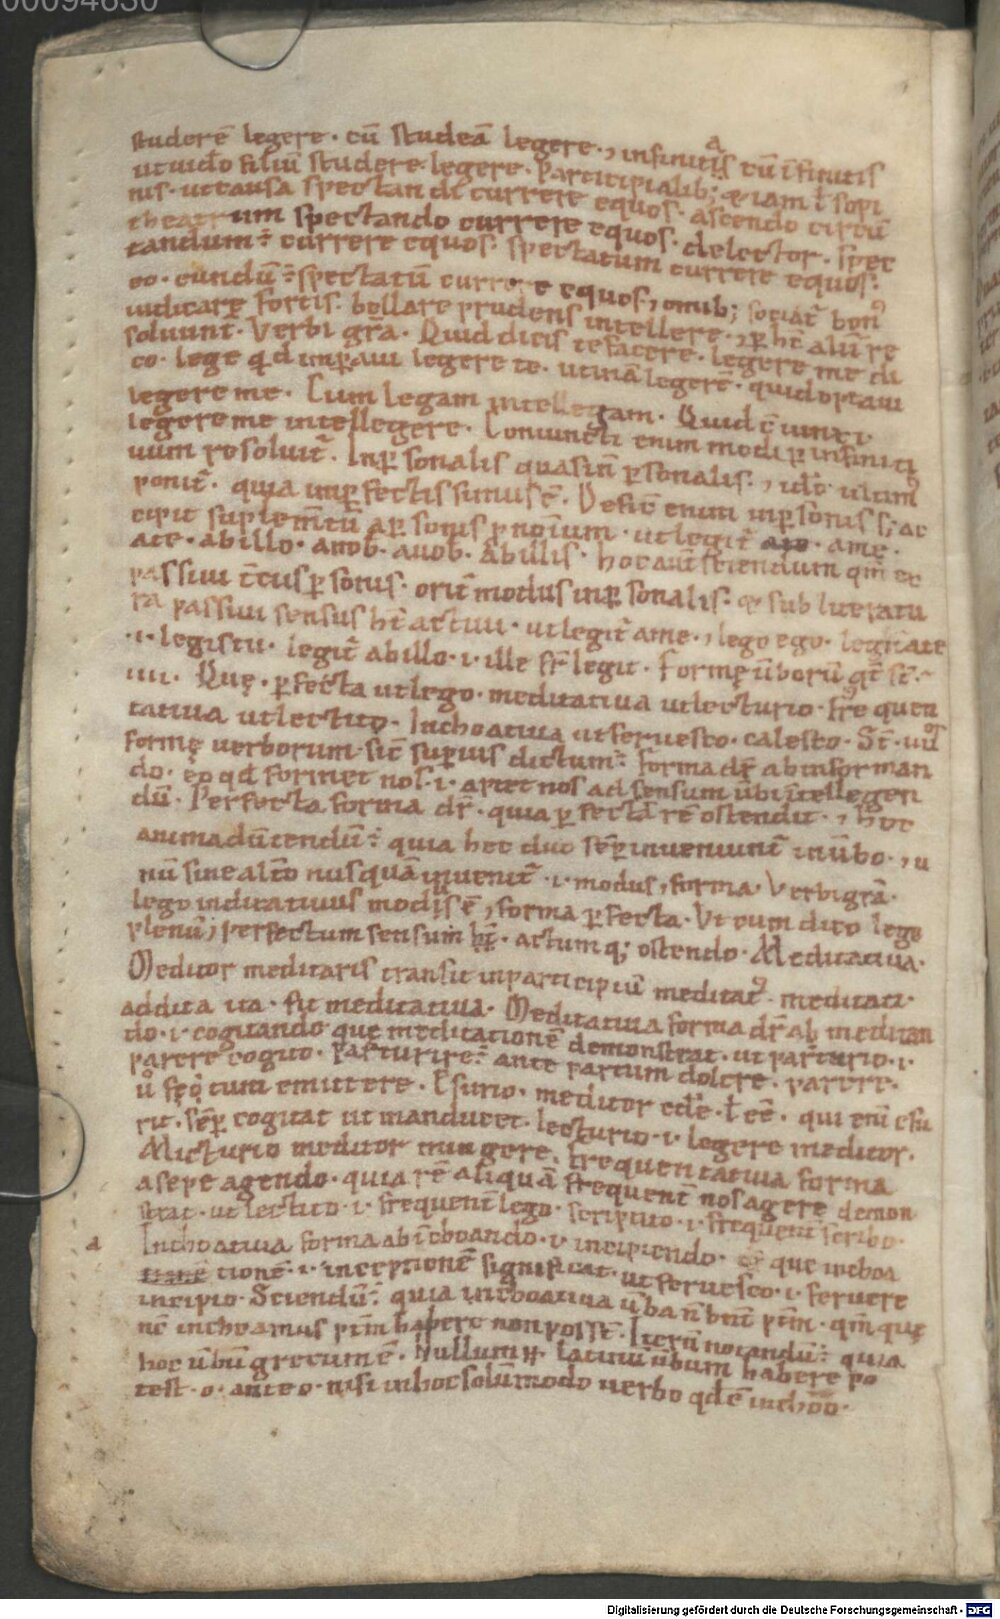 00094630
studerē legere · cū studeā legere · ⁊ infinitis cū ifinitis
ut uideo filiū studere legere · Participialib;
nis · ut causa spectandi currere equos · ascendo circū
theatrum spectando currere equos · delector · spec
tandum · currere equos · spectatum currere equos ·
eo · eundū · spectatū currere equos ⁊ omnib; sociat̄ bon᷒
iudicare fortis · bellare prudens intellere ·
soluunt · Verbi gra · Quid dicis te facere · legere me di
co · lege legere te · utinā legerē · quid optaui
legere me · Cum legam intellegam · Quid ē
legere me intellegere · Coniuncti enim modi p infiniti
uum resoluit̄ · Inp̄sonalis quasi n̄ p̄sonalis ·
ponit̄ · quia inp̄fectissimus ē · Deficit enim inp̄sonis
cipit suplem̄tū a p̄sonis p̄noīum · ut legit̄ a me ·
a te · ab illo · a nob̄ · a uob̄ · ab illis · hoc aut̄ sciendum qm̄ ex
passiui t̄tius p̄sonis · orit̄ modus inp̄sonalis · sub literatu
ra passiui sensus ht̄ actiui · ut legit̄ a me · ⁊ lego ego · legit̄ a te
· i · legis tu · legit̄ ab illo · i · ille legit · Formę ūborū
iiii · Quę · p̄fecta ut lego · meditatiua ut lecturio · frequen
tatiua ut lectito · Inchoatiua ut feruesco · calesco ·
formę uerborum sic̄ sup̄ius dictum · forma dr̄ ab informan
do · eo qd̄ formet nos · i · aptet nos ad sensum ūbi īntellegen
dū · Perfecta forma dr̄ · quia p̄fectā rē ostendit · ⁊ hoc
animaduertendū · quia hec duo sēp inueniunt̄ in ūbo · ⁊ u
nū sine alt̄o nusquā inuenit̄ · i · modus ⁊ forma · Verbi grā ·
lego indicatiuus modus ē ⁊ forma p̄fecta · Vt cum dico lego
plenū ⁊ perfectum sensum ht̄ · actumq; ostendo · Meditatiua ·
Meditor meditaris transit in participiū meditat᷒ · meditati ·
addita ua · fit meditatiua · Meditatiua forma dr̄ ab meditan
do · i · cogitando · que meditationē demonstrat · ut parturio · i ·
parere cogito · Parturire · ante partum dolere · parere ·
ū fętum emittere · Esurio · meditor edere · ł eē · qui eni esu
rit · sēp cogitat ut manducet · lecturio · i · legere meditor ·
Micturio meditor mingere · Frequentatiua forma
a sepe agendo · quia rē aliquā frequent̄ nos agere demon
strat · ut lectito · i · frequent̄ lego · scriptito · i · frequent̄ scribo ·
Inchoatiua forma ab ī choando · i · incipiendo · que inchoa
tionē · i · inceptionē significat · ut feruesco · i · feruere
incipio · Sciendū · quia inchoatiua ūba n̄ hn̄t p̄tm̄ · qm̄ quę
nc̄ inchoamus p̄tm̄ habere non possē · Iterū notandū · quia
hoc ūbū grecum ē · Nullum latinū ūbum habere po
test · o · ante o · nisi in hoc solūmodo uerbo qd̄ ē inchoo ·
Digitalisierung gefördert durch die Deutsche Forschungsgemeinschaft - DFG